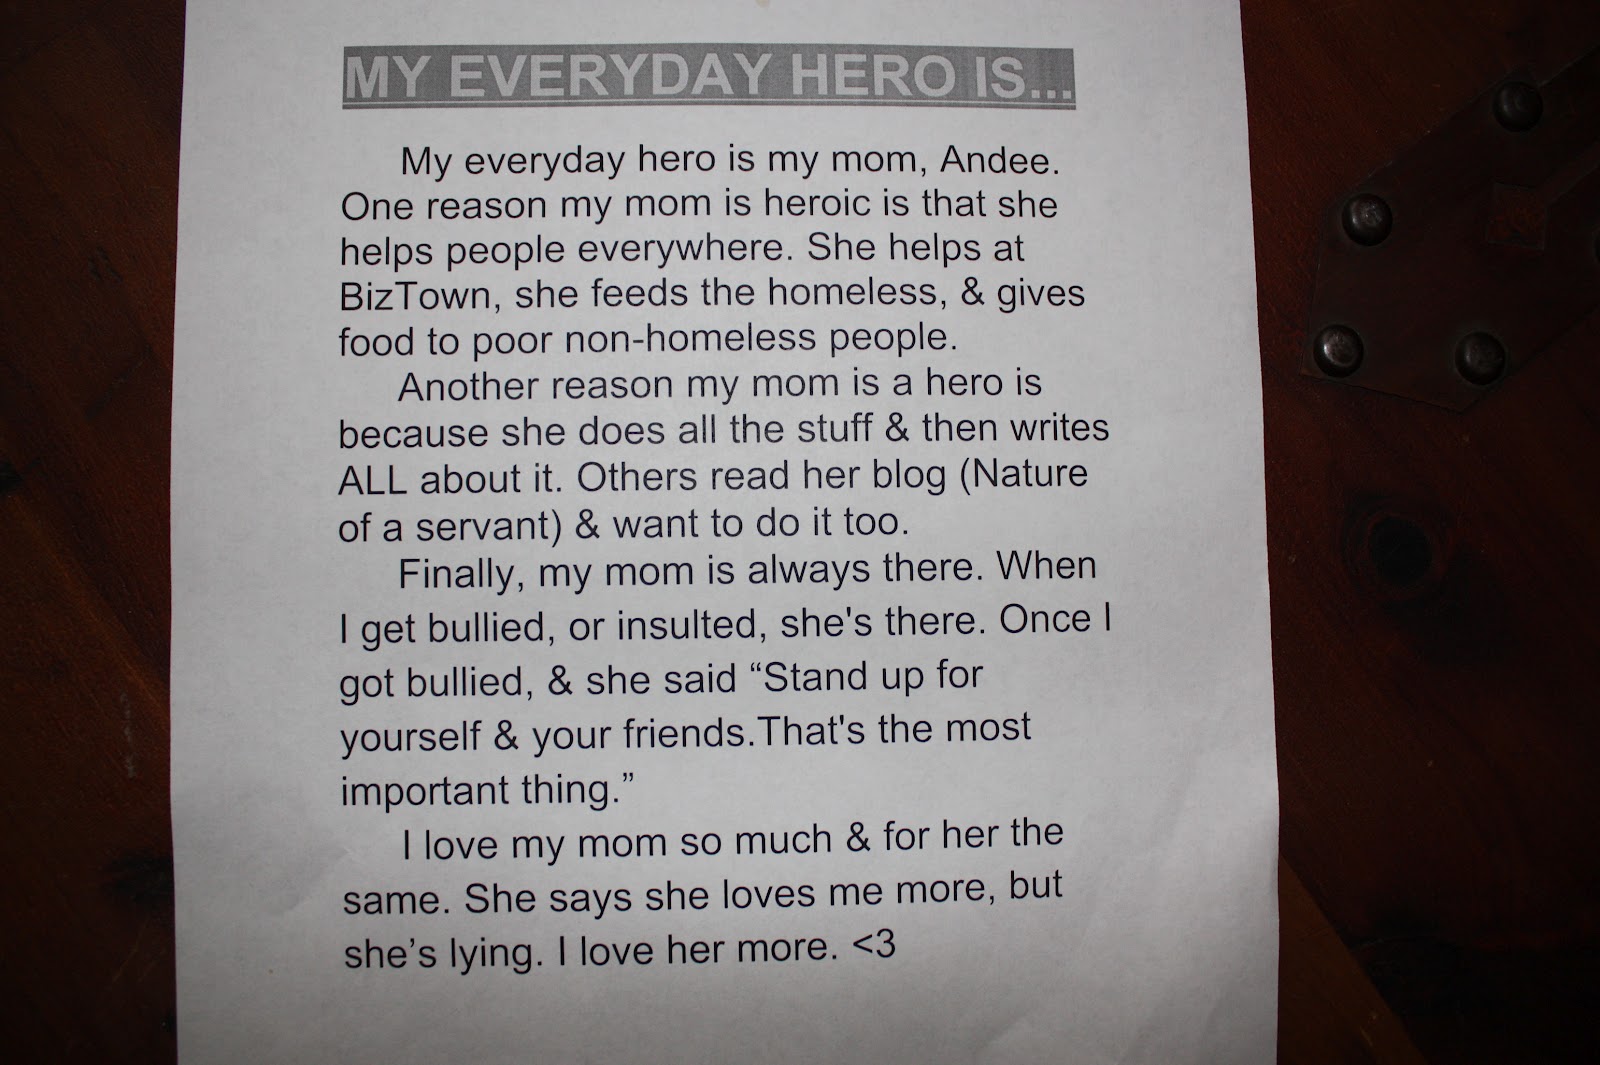 MY EVERYDAY HERO IS...
My everyday hero is my mom, Andee.
One reason my mom is heroic is that she
helps people everywhere. She helps at
BizTown, she feeds the homeless, & gives
food to poor non-homeless people.
Another reason my mom is a hero is
because she does all the stuff & then writes
ALL about it. Others read her blog (Nature
of a servant) & want to do it too.
Finally, my mom is always there. When
I get bullied, or insulted, she's there. Once I
got bullied, & she said “Stand up for
yourself & your friends.That's the most
important thing.”
I love my mom so much & for her the
same. She says she loves me more, but
she’s lying. I love her more. <3